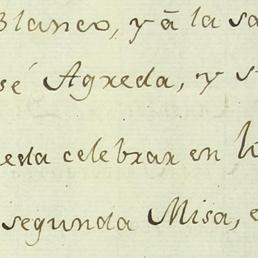 Blanco, y â la sa
sé Agreda, y s
eda celebrar en l
segunda Misa, e